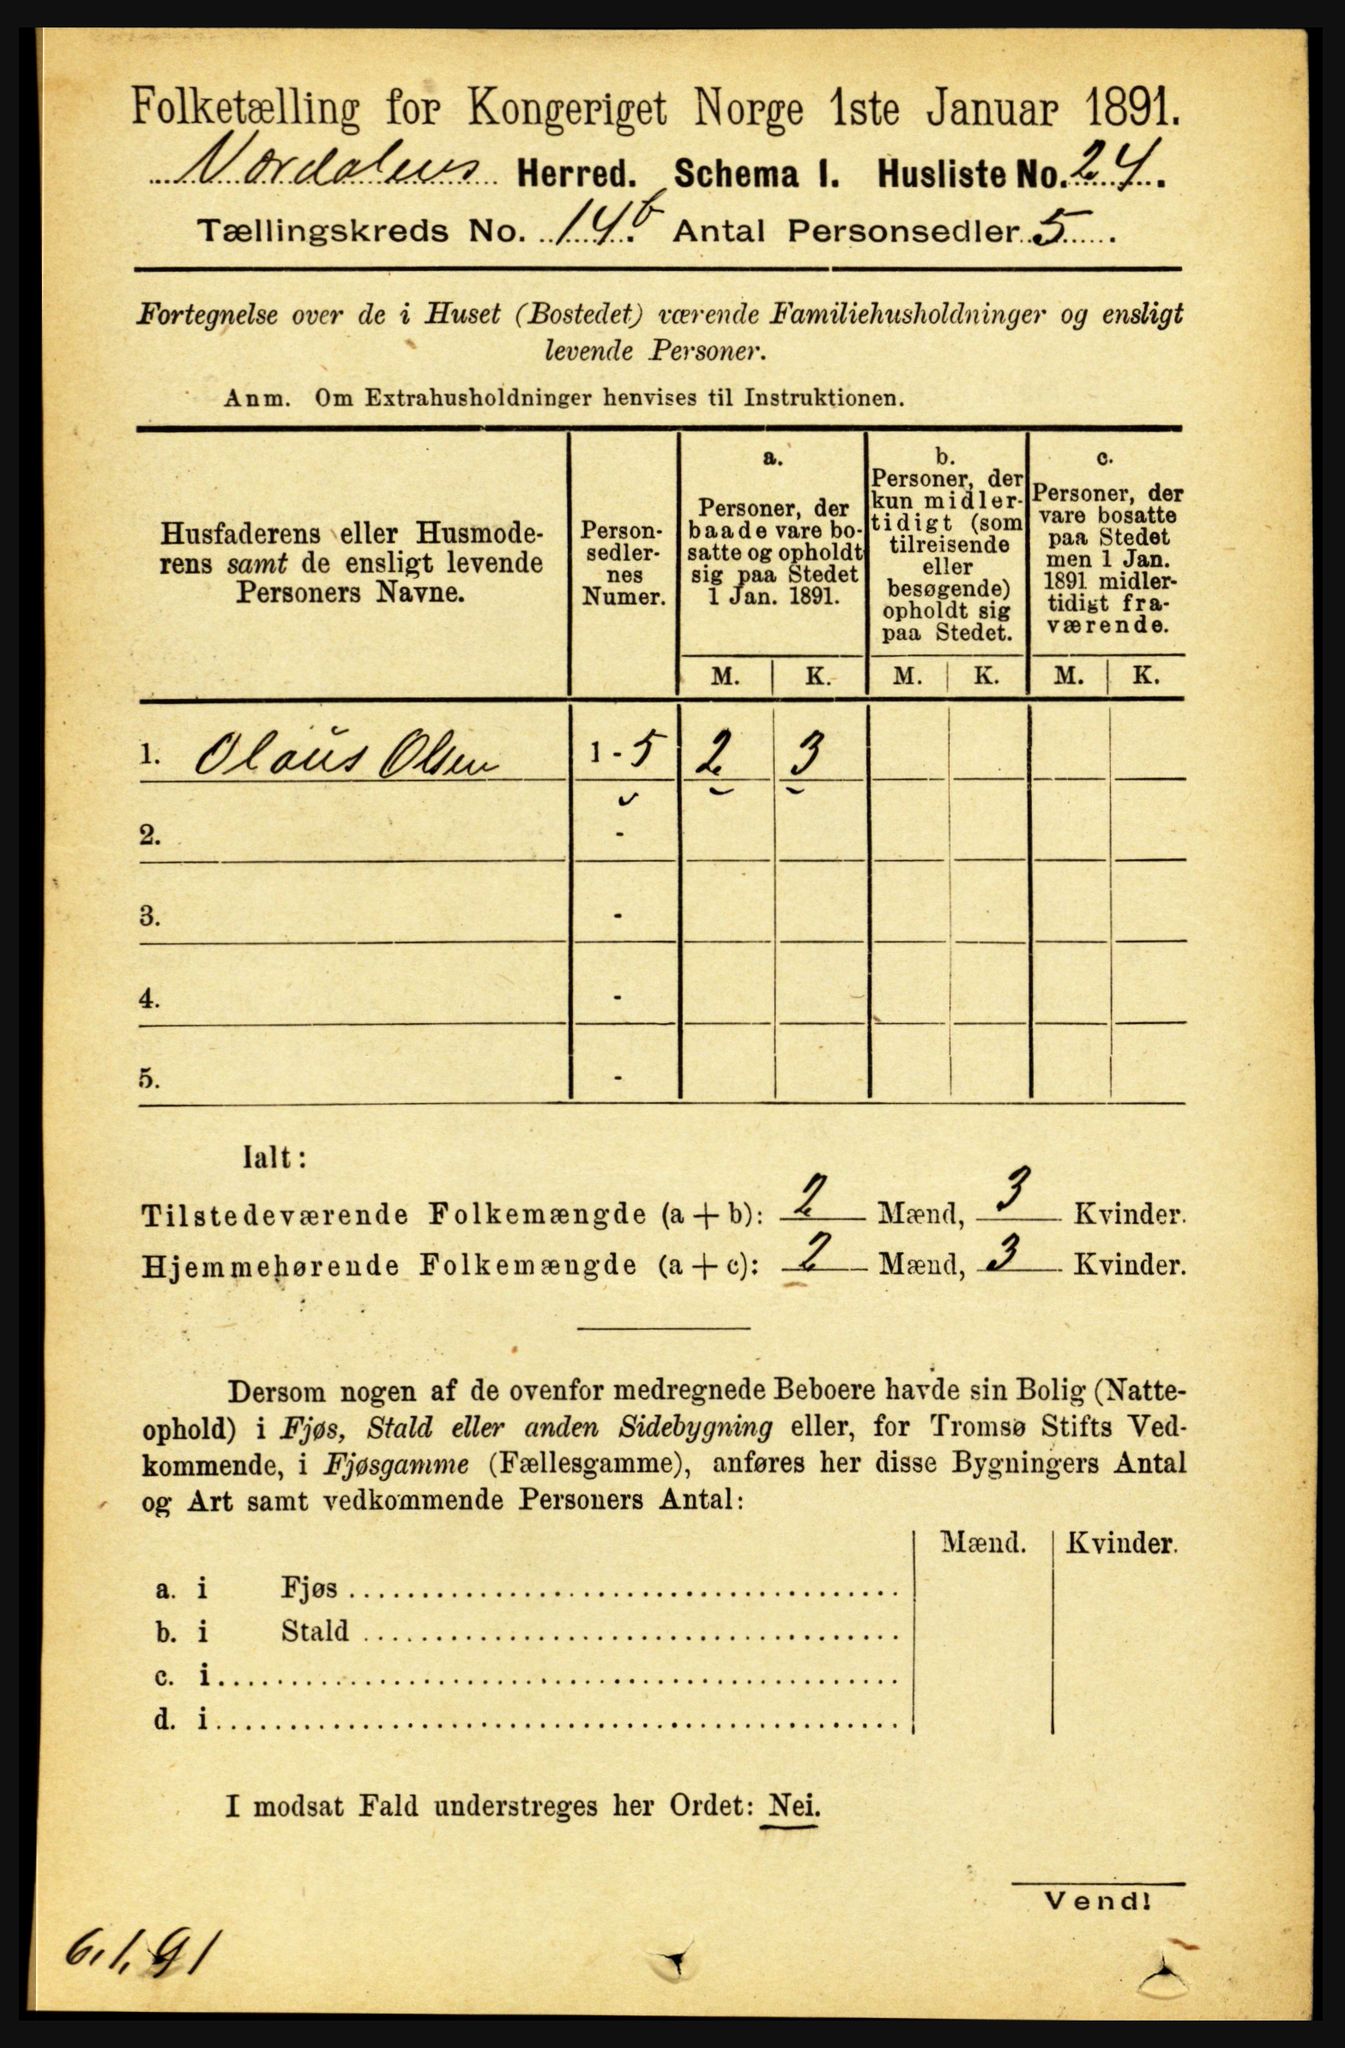 Folketælling for Kongeriget Norge 1ste Januar 1891.
Nordalens Herred. Schema 1. Husliste No. 24.
Tællingskreds No. 14b. Antal Personsedler 5.
Fortegnelse over de i Huset (Bostedet) værende Familiehusholdninger og ensligt
levende Personer.
Anm. Om Extrahusholdninger henvises til Instruktionen.
Husfaderens eller Husmode-
rens samt de ensligt levende
Personers Navne.
Person-
sedler-
nes
Numer.
a.
Personer, der
baade vare bo-
satte og opholdt
sig paa Stedet
1 Jan. 1891.
b.
Personer, der
kun midler-
tidigt (som
tilreisende
eller
besøgende)
opholdt sig
paa Stedet.
c.
Personer, der
vare bosatte
paa Stedet
men 1 Jan.
1891 midler-
tidigt fra-
værende.
M. K. M. K. M. K.
1. Olaus Olsen 1 - 5 2 3
2. -
3. -
4. -
5. -
Ialt:
Tilstedeværende Folkemængde (a + b): 2 Mænd, 3 Kvinder.
Hjemmehørende Folkemængde (a + c): 2 Mænd, 3 Kvinder.
Dersom nogen af de ovenfor medregnede Beboere havde sin Bolig (Natte-
ophold) i Fjøs, Stald eller anden Sidebygning eller, for Tromsø Stifts Ved-
kommende, i Fjøsgamme (Fællesgamme), anføres her disse Bygningers Antal
og Art samt vedkommende Personers Antal:
Mænd. Kvinder.
a. i Fjøs
b. i Stald
c. i
d. i
I modsat Fald understreges her Ordet: Nei.
Vend!
6.1.91